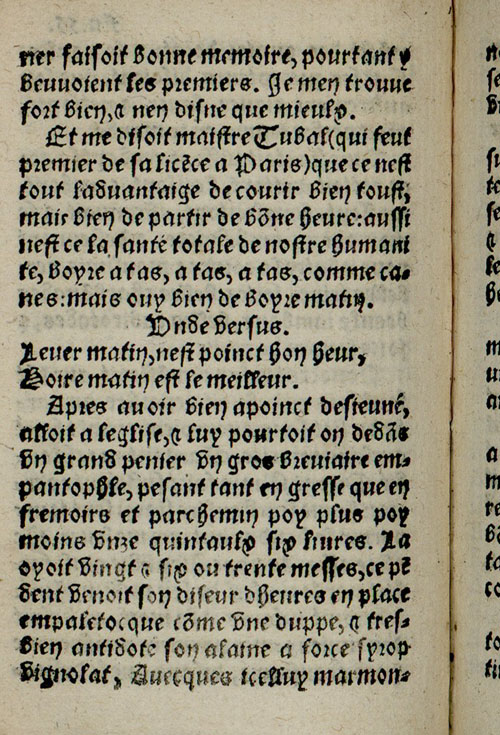 ner faisoit bonne memoire, pourtant y
beuuoient les premiers. Je men trouue
fort bien, & nen disne que mieulx.
Et me disoit maistre Tubal (qui feut
premier de sa licẽce a Paris) que ce nest
tout laduantaige de courir bien toust,
mais bien de partir de bõne heure: aussi
nest ce la santé totale de nostre humani
te, boyre a tas, a tas, a tas, comme ca-
nes: mais ouy bien de boyre matin.
Unde versus.
Leuer matin, nest poinct bon heur,
Boire matin est le meilleur.
Apres auoir bien apoinct desieuné,
alloit a leglise, & luy pourtoit on dedãs
vn grand penier vn gros breuiaire em-
pantophlé, pesant tant en gresse que en
fremoirs et parchemin poy plus poy
moins vnze quintaulx six liures. La
oyoit vingt & six ou trente messes, ce pẽ
dent venoit son diseur dheures en place
empaletocque cõme vne duppe, & tres-
bien antidoté son alaine a force syrop
vignolat, Auecques icelluy marmon-